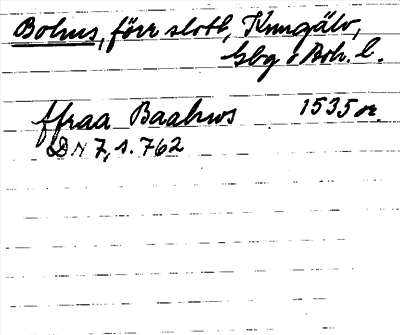 Bohus, förr slott, Kungälv,
Gbg o Boh. l.
ffraa Baahws 1535 or.
DN 7, s. 762